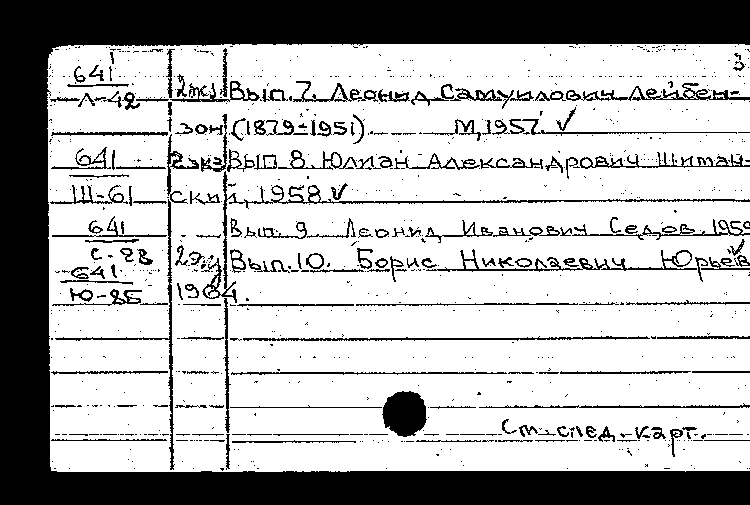 3
641 2экз. Вып. 7. Леонид Самуилович Лейбен-
Л-42
зон (1879-1951). М, 1957. ✓
641 2экз Вып 8. Юлиан Александрович Шиман-
Ш-61 ский, 1958 ✓
641 Вып. 9. Леонид Иванович Седов. 1959
С-28 2экз Вып. 10. Борис Николаевич Юрьев ✓
641
Ю-85 1964.
См. след. карт.